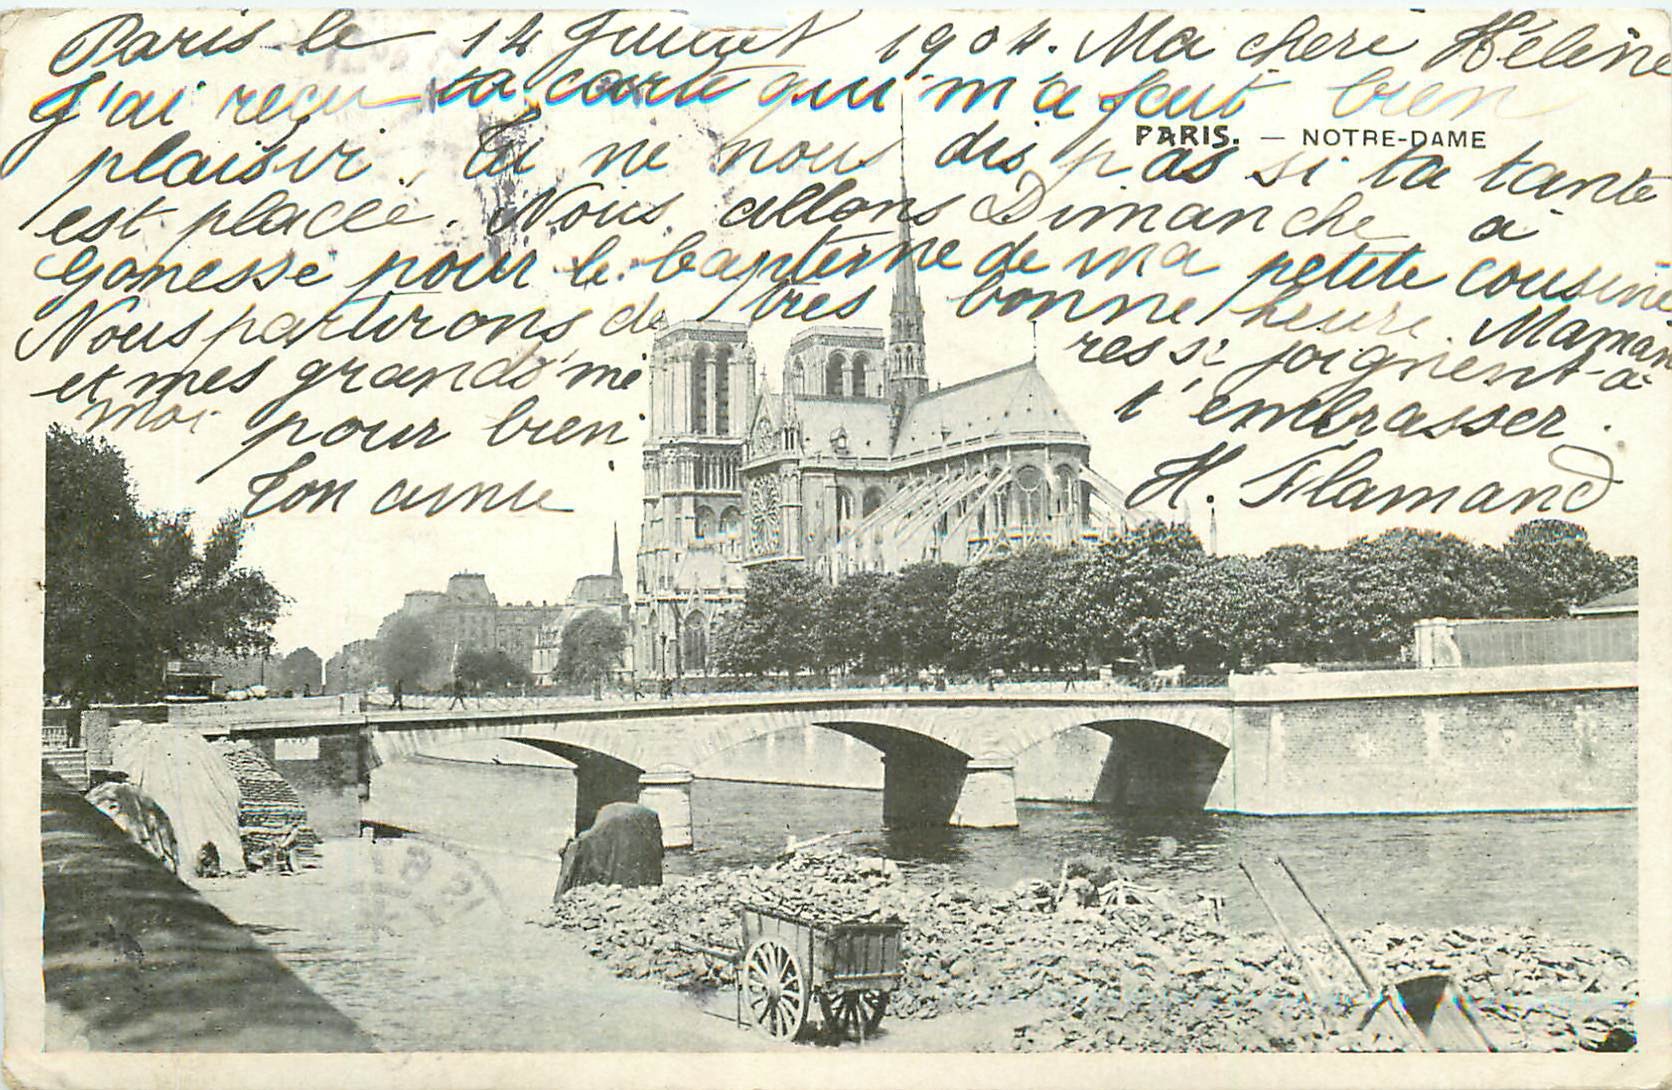 Paris le 14 Juillet 1904. Ma chere Hélène
J'ai reçu ta carte qui m'a fait bien
PARIS. — NOTRE-DAME
plaisir. Tu ne nous dis pas si ta tante
est placée. Nous allons Dimanche à
Gonesse pour le baptême de ma petite cousine
Nous partirons de très bonne heure. Maman
et mes grand'mères se joignent à
moi pour bien t'embrasser.
Ton amie H. Flamand